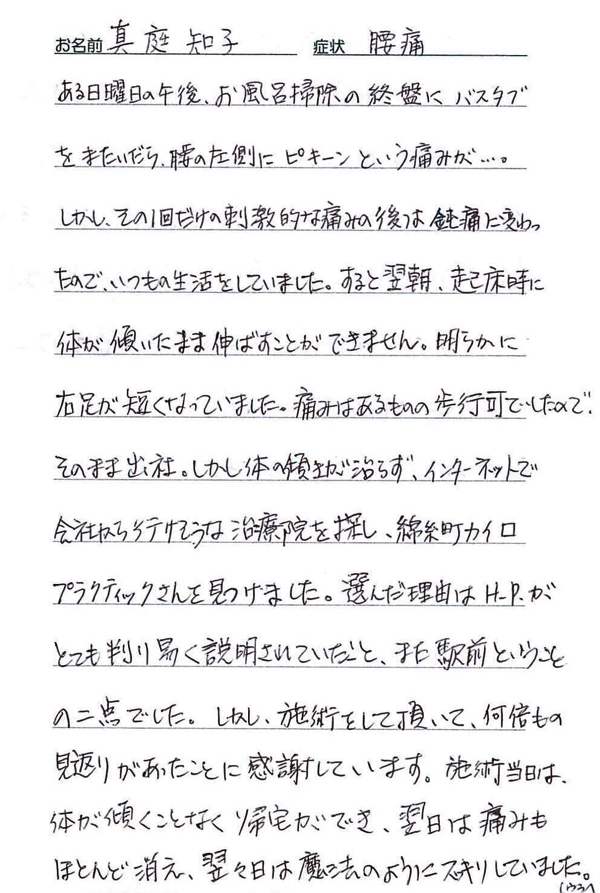 お名前 真庭 知子 症状 腰痛
ある日曜日の午後、お風呂掃除の終盤にバスタブ
をまたいだら、腰の左側にピキーンという痛みが…。
しかし、その1回だけの刺激的な痛みの後は鈍痛に変わっ
たので、いつもの生活をしていました。すると翌朝、起床時に
体が傾いたまま伸ばすことができません。明らかに
右足が短くなっていました。痛みはあるものの歩行可でしたので、
そのまま出社。しかし体の傾きが治らず、インターネットで
会社から行けそうな治療院を探し、錦糸町カイロ
プラクティックさんを見つけました。選んだ理由はH.P.が
とても判り易く説明されていたこと、また駅前ということ
の二点でした。しかし、施術をして頂いて、何倍もの
見返りがあったことに感謝しています。施術当日は、
体が傾くことなく帰宅ができ、翌日は痛みも
ほとんど消え、翌々日は魔法のようにスッキリしていました。